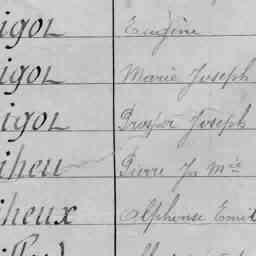 igot Eugène
igot Marie Joseph
igot Prosper Joseph
iheu Pierre Jn Mie
iheux Alphonse Emil